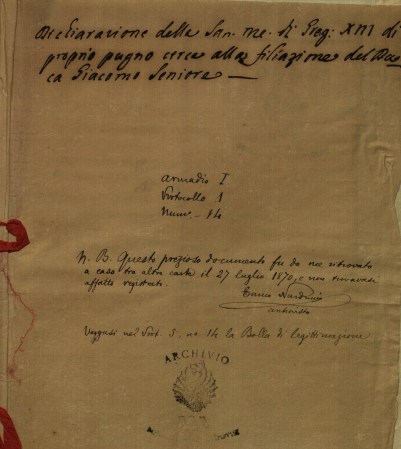 Dichiarazione della San. me. di Greg: XIII di
proprio pugno circa alla filiazione del Du
ca Giacomo Seniore —
Armadio I
Protocollo 1
Num. 14
N. B. Questo prezioso documento fu da me ritrovato
a caso tra altre carte il 27 luglio 1870, e non trovavasi
affatto registrato.
Enrico Narducci
archivista
Veggasi nel Prot. 5. no. 14 la Bolla di legittimazione
ARCHIVIO